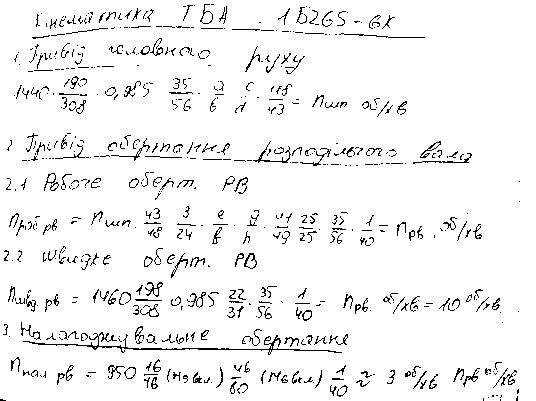 Кінематика ТБА 1Б265-6К
1. Привід головного руху
1440 · 190/308 · 0,985 35/56 · a/b · c/d · 48/43 = nшп об/хв
2. Привід обертання розподільчого вала
2.1 Робоче оберт. РВ
nроб рв = nшп. 43/48 · 3/24 · e/f · g/h · 41/49 · 25/25 · 35/56 · 1/40 = nрв. об/хв
2.2 Швидке оберт. РВ
nшвд. рв = 1460 198/308 0,985 22/31 · 35/56 · 1/40 = nрв. об/хв = 10 об/хв.
3. Налагоджувальне обертання
nнал рв = 950 16/46 (М5 вкл.) 46/60 (М6 вкл.) 1/40 ≈ 3 об/хв nрв об/хв